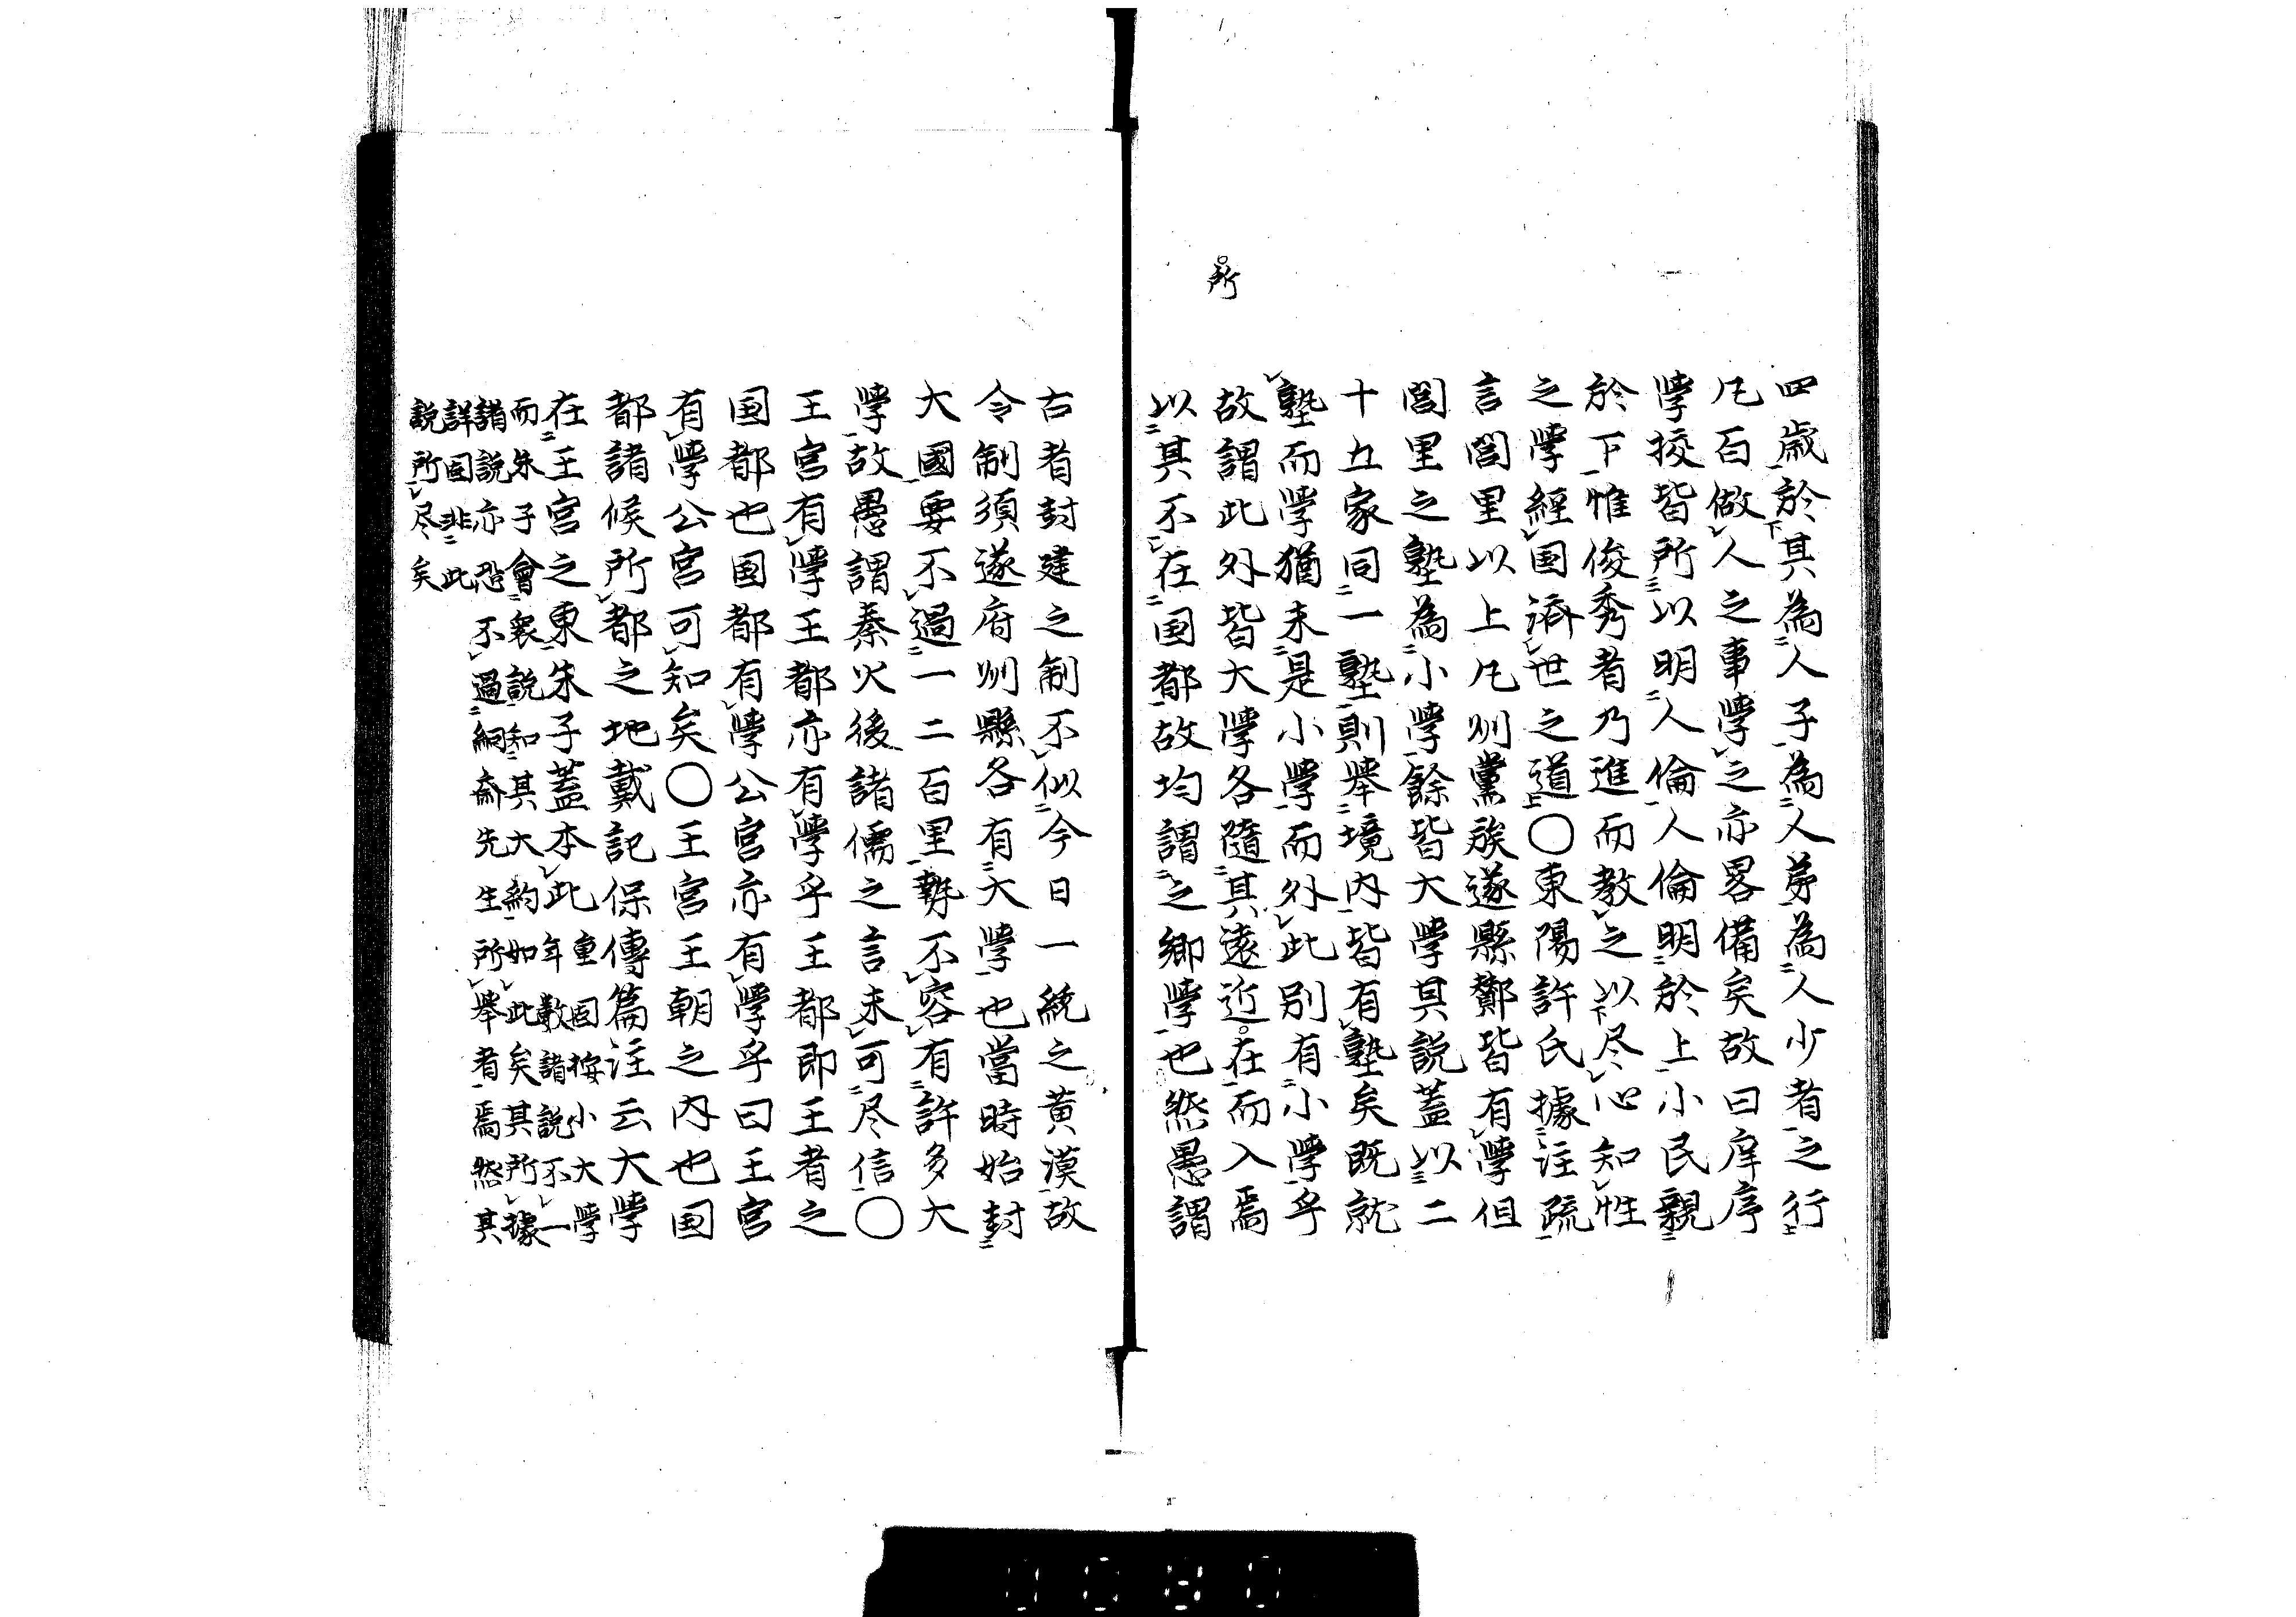 四歳於其為人子為人弟為人少者之行
凡百做人之事學之亦畧備矣故曰庠序
學挍皆所以明人倫人倫明於上小民親
於下惟俊秀者乃進而教之以尽心知性
之學經国済世之道〇東陽許氏據注疏
言閭里以上凡州黨族遂縣鄼皆有學但
閭里之塾為小學餘皆大學其説蓋以二
十五家同一塾則舉境内皆有塾矣既就
塾而學猶未是小學而外此別有小學乎
故謂此外皆大學各隨其遠近在而入焉
所
以其不在国都故均謂之郷學也然愚謂
古者封建之制不似今日一統之黄漠故
令制須遂府州縣各有大學也當時始封
大國要不過一二百里勢不容有許多大
學故愚謂秦火後諸儒之言未可尽信〇
王宮有學王都亦有學乎王都即王者之
国都也国都有學公宮亦有學乎曰王宮
有學公宮可知矣〇王宮王朝之内也国
都諸侯所都之地戴記保傳篇注云大學
在王宮之東朱子蓋本此
重固按小大學
年數諸説不一
而朱子會衆説知其大約如此矣其所據
諸説亦恐不過絅斎先生所舉者焉然其
詳固非此
説所尽矣